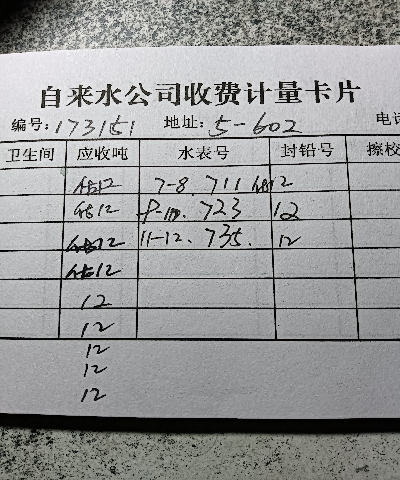 自来水公司收费计量卡片
编号: 173151 地址: 5-602 电话
卫生间 应收吨 水表号 封铅号 擦校
12 7-8. 711 12
12 9-10. 723 12
12 11-12. 735. 12
12
12
12
12
12
12